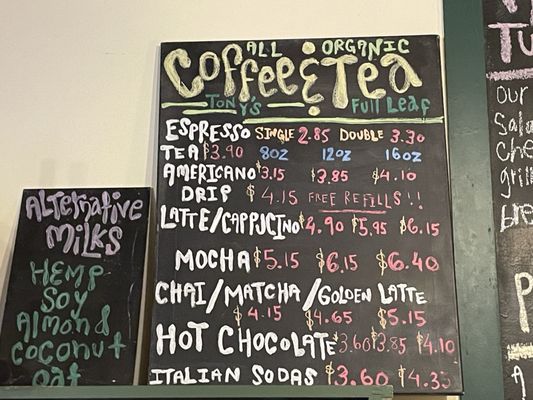 ALL ORGANIC
Coffee & Tea
TONY'S Full Leaf
ESPRESSO SINGLE 2.85 DOUBLE 3.30
TEA $3.90 8oz 12oz 16oz
AMERICANO $3.15 $3.85 $4.10
DRIP $4.15 FREE REFILLS!!
LATTE/CAPPUCINO $4.90 $5.95 $6.15
MOCHA $5.15 $6.15 $6.40
CHAI/MATCHA/GOLDEN LATTE
$4.15 $4.65 $5.15
HOT CHOCOLATE $3.60 $3.85 $4.10
ITALIAN SODAS $3.60 $4.35
Alternative
Milks
Hemp
Soy
Almond
coconut
oat
Our